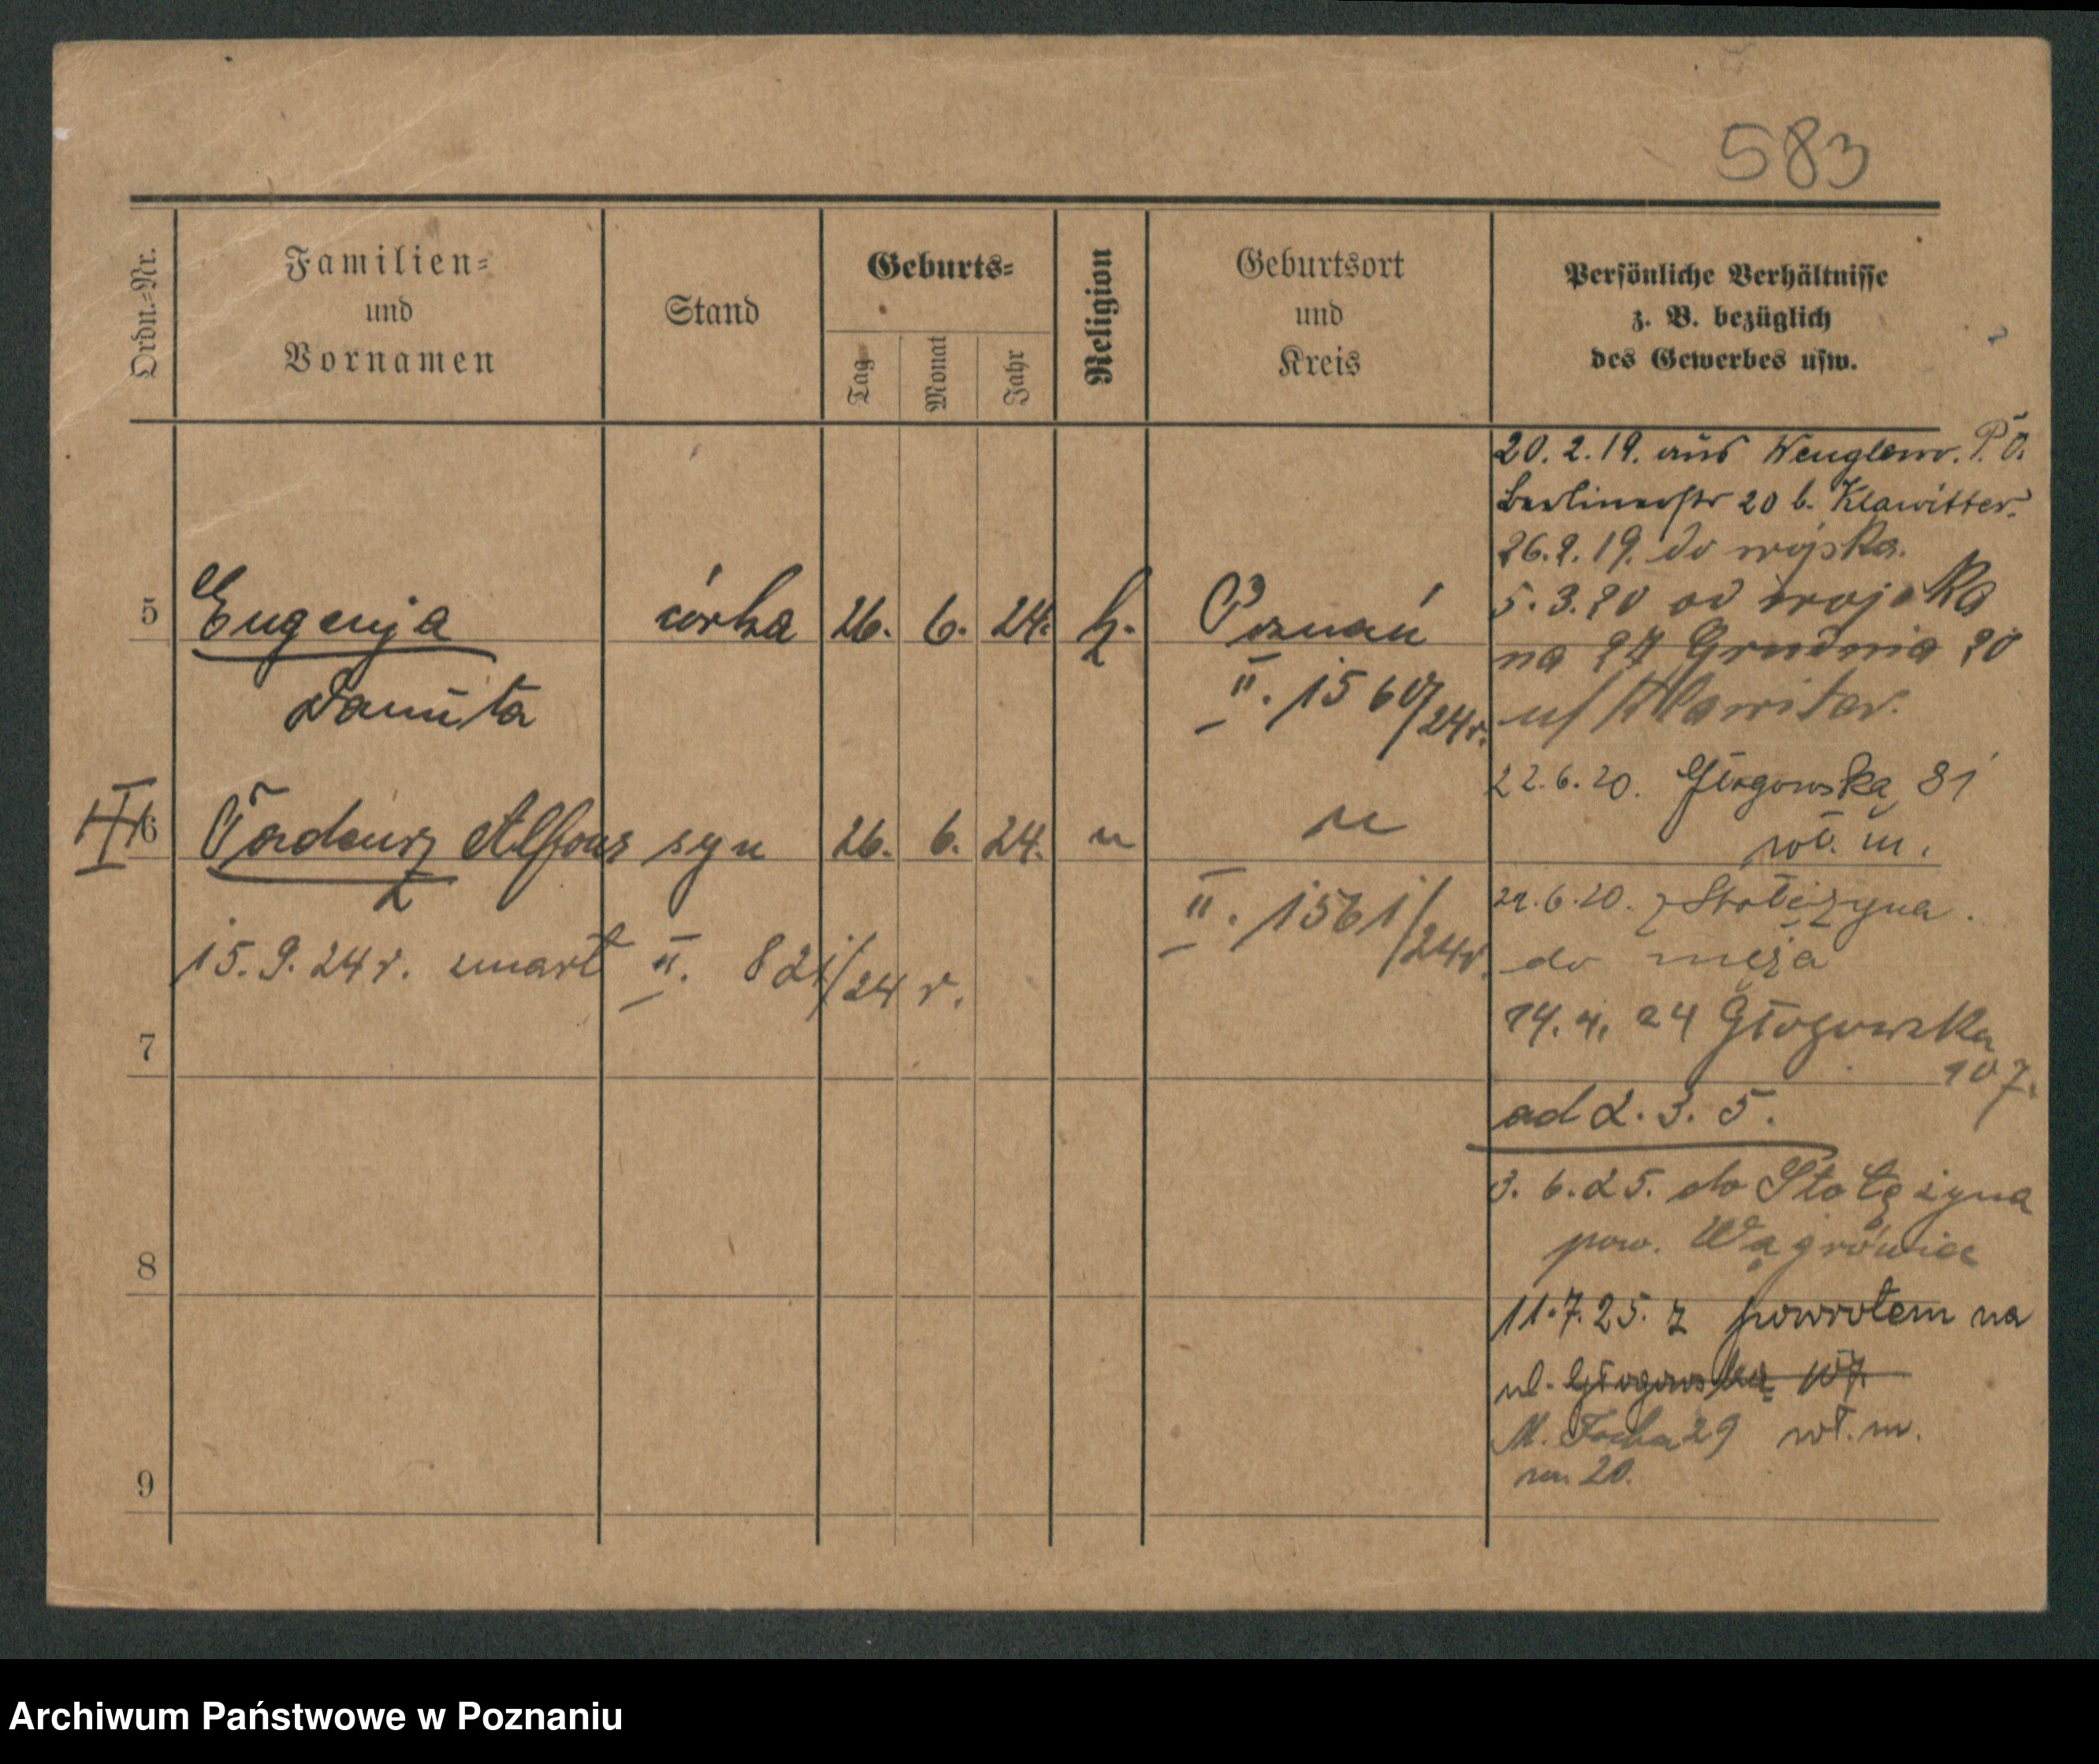 583
Ordn.=Nr.
Familien=
und
Vornamen
Stand
Geburts=
Tag
Monat
Jahr
Religion
Geburtsort
und
Kreis
Persönliche Verhältnisse
z. B. bezüglich
des Gewerbes usw.
20.2.19. aus P.O.
Berlinerstr 20 b. Klawitter.
26.2.19. do wojska.
5.3.20 od wojska
na 27 Grudnia 20
u/ Klawiter.
22.6.20. Głogowska 81
wł. m.
22.6.20. z Stołężyna.
do męża
14.4.24 Głogowska
107.
ad 2. 3. 5.
3.6.25. do Stołężyna
pow. Wągrówiec
11.7.25. z powrotem na
ul. Głogowską 107.
M. Focha 29 wł. m.
m 20.
5 Eugenja córka 26. 6. 24. k. Poznań
Danuta II. 1560/24r.
III 6 Tadeusz Alfons syn 26. 6. 24. " "
II. 1561/24r.
15.9.24r. zmarł II. 821/24 r.
7
8
9
Archiwum Państwowe w Poznaniu